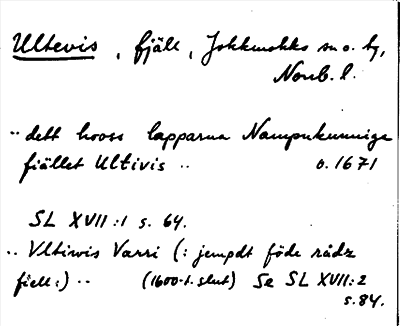 Ultevis, fjäll, Jokkmokks sn o. tg,
Norrb. l.
"dett hooss lapparna Nampnkunnige
fiället Ultivis" o. 1671
SL XVII:1 s. 64.
"Vltiwis Varri (: jempdt föde rådz
fiell:)" (1600-t. slut) Se SL XVII:2
s. 84.